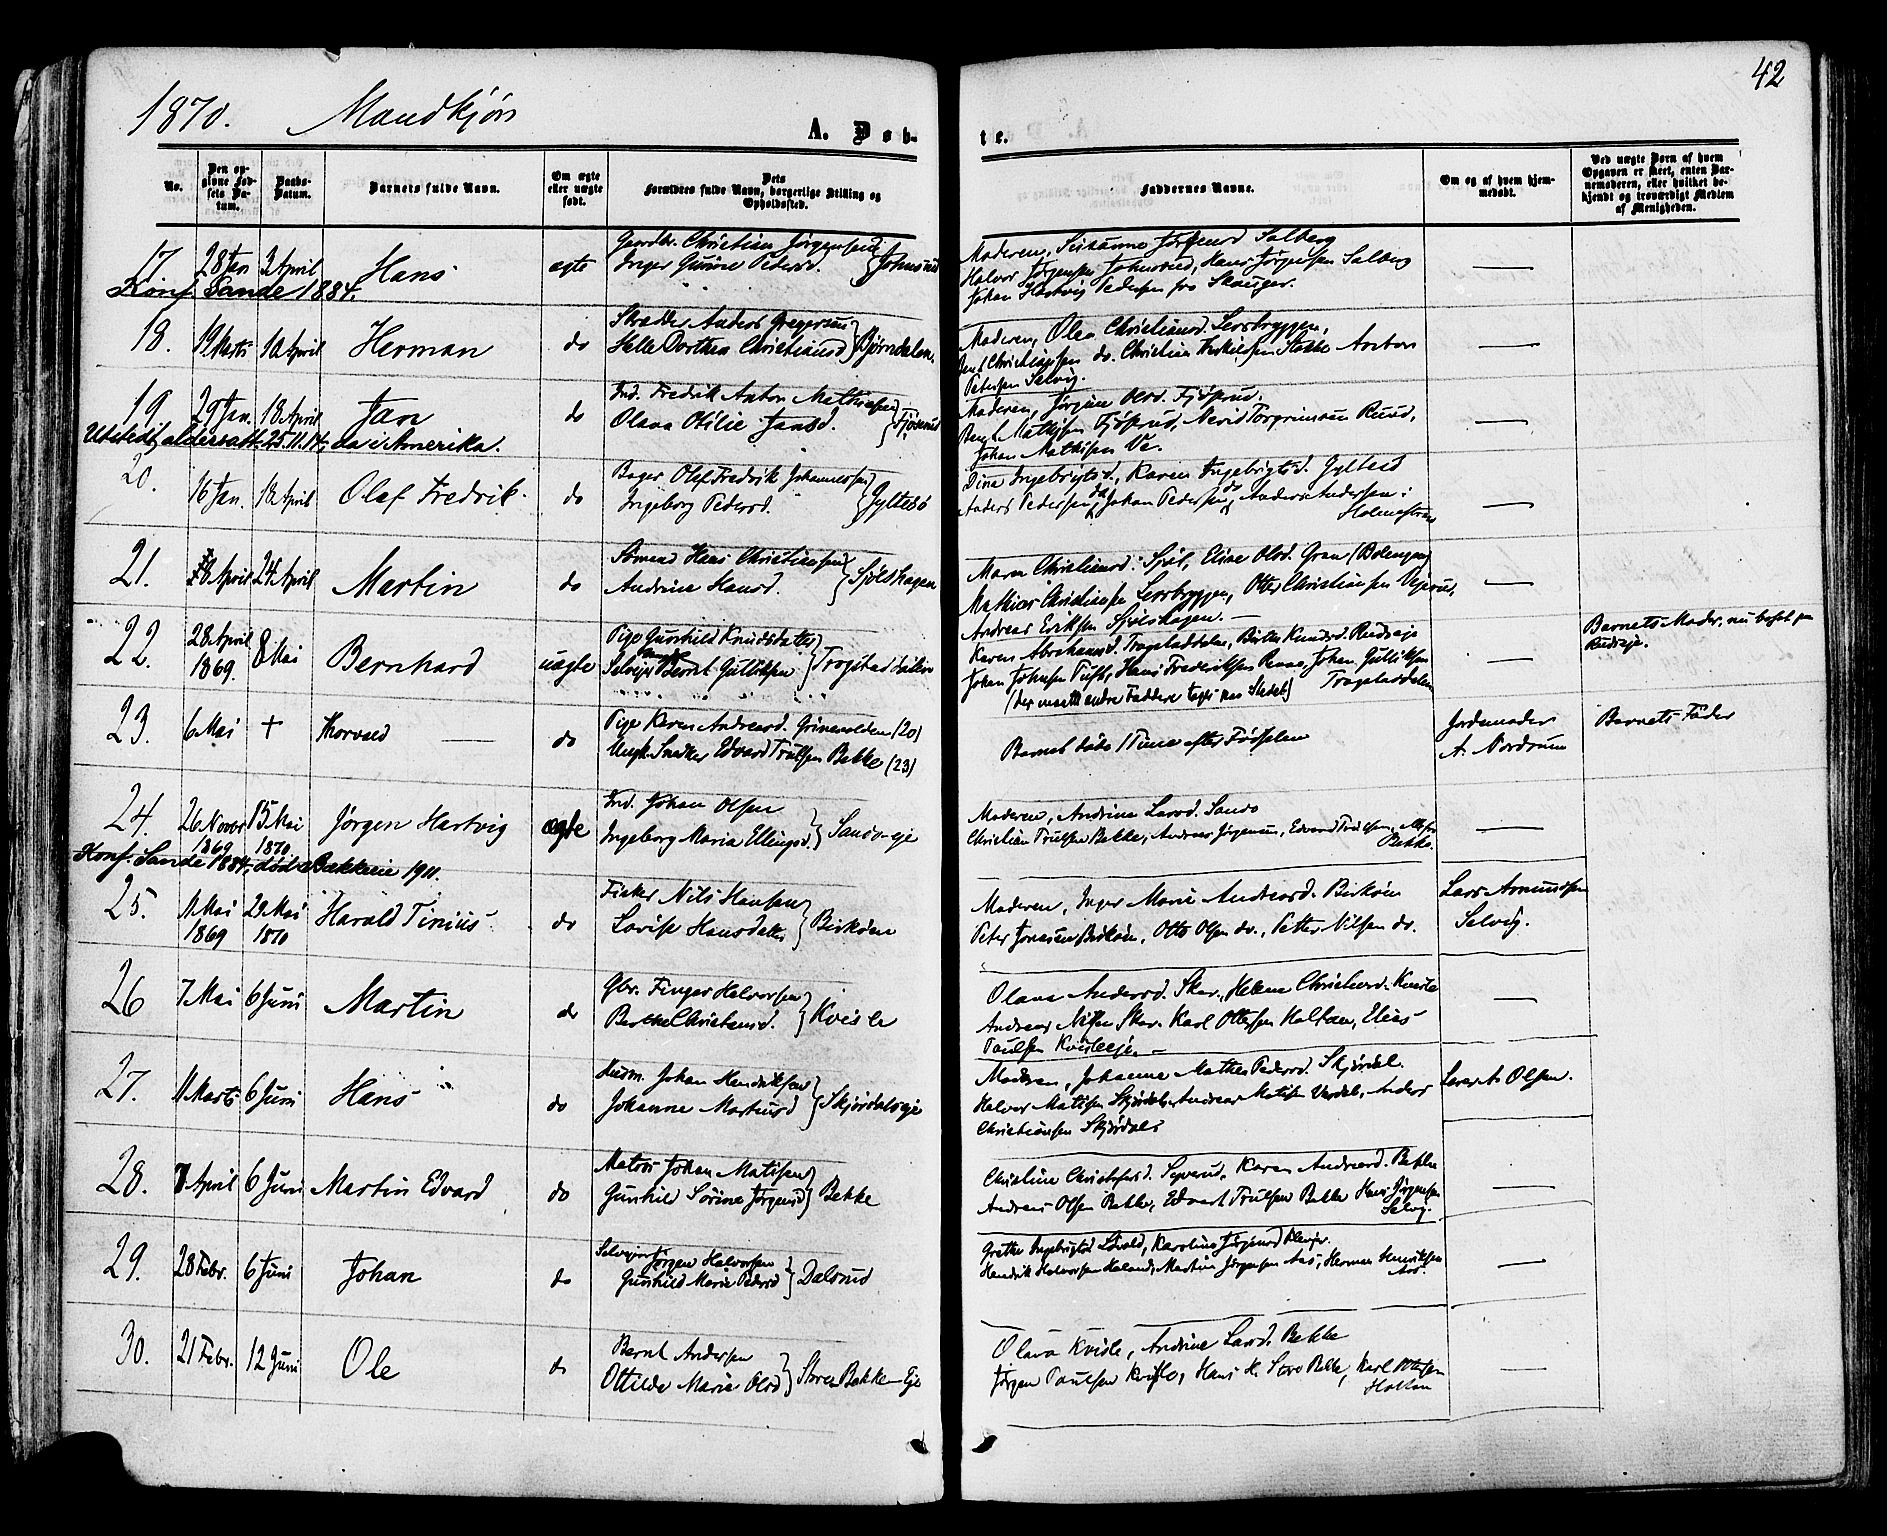 1870. Mandkjön
A. Døb-
te.
42
No.
Den opgivne Fødsels Datum.
Daabs-Datum.
Barnets fulde Navn.
Om ægte eller uægte født.
Dets Forældres fulde Navn, borgerlige Stilling og Opholdssted.
Faddernes Navne.
Om og af hvem hjemmedøbt.
Ved uægte Børn af hvem Opgaven er skeet, enten Barnemoderen, eller hvilket bekjendt og troværdigt Medlem af Menigheden.
17. 28 Jan 3 April Hans ægte
Gaardbr. Christian Jörgensen
Inger Gurine Pedersd.
Moderen, Susanne Jörgensd Solberg
Halvor Jörgensen Johnsrud, Hans Jörgensen Solberg
Johan Hartvig Pedersen fra Skouger.
Konf. Sande 1884.
18. 19 Marts 10 April Herman do
Skrædder Anders Gregersen
Helle Dorthea Christiansd } Bjørndalen.
Moderen, Olea Christiansd. Lersbryggen,
Bent Christiansen do. Christian Stokke Anton
Petersen Selvig.
19 29 Jan. 18 April Jan do
Ind. Fredrik Anton Mathisen
Olava Otilie Jansd.
Moderen, Jörgine Olsd. Fjösrud,
Bengt Mathisen Fjösrud, Torgrimsen Ruud,
Johan Mathisen Ve.
Utstedt aldersatt. 25.11.14, da i Amerika.
20. 16 Jan. 18 April Olaf Fredrik do
Bager Olaf Fredrik Johannessen
Ingeborg Pedersd. } Gyltesö
Dina Ingebrigtsd., Karen Ingebrigtsd. Gyltesö
Anders Pedersen do, Johan Pedersen do, Anders Andersen i
Holmestrand
21. 18 April 24 April Martin do
Sömand Hans Christiansen
Andrine Hansd. } Sjölshagen
Maren Christiansd. Sjöl, Eline Olsd. Gran (Bolengen)
Mathias Christiansen Lersbryggen, Otter Christiansen
Andreas Eriksen Sjölshagen.
22. 28 April 1869. 8 Mai Bernhard uægte
Pige Gunhild Knudsdatter
Selveier Bernt Gulliksen } Trogstadsæteren
Karen Abrahamsd. Trogstaddalen, Birthe Knudsd. Rudseje
Johan Johnsen Tuft, Hans Frederiksen, Johan Gulliksen
Trogstaddalen
Barnets Moder, nu bosat paa
Rudseje.
23. 6 Mai + Thorvald — do
Pige Karen Andreasd. Grinevolden (20)
Ungk. Snedker Edvard Trulsen Bekke (23)
Barnet döde 1 Time efter Födselen
Jordemoder
A. Nordrum
Barnets Fader
24. 26 Novbr 1869 15 Mai 1870 Jörgen Hartvig ægte
Ind. Johan Olsen
Ingeborg Maria Ellingsd. } Sands-eje
Moderen, Andrine Larsd. Sands
Christian Trulsen Bekke, Andreas Jörgensen, Edvard Trulsen,
Bekke.
Konf. Sande 1884, død Bækkeeie 1911.
25. 11 Mai 1869 29 Mai 1870 Harald Tinius do
Fisker Nils Hansen
Lovise Hansdatter } Birköen
Moderen, Inger Marie Andreasd. Birköen
Peter Jonassen Birköen, Otto Olsen do., Petter Nilsen do.
Lars Amundsen
Selvig.
26 7 Mai 6 Juni Martin do
Gbr. Finger Halvorsen
Berthe Christensd. } Kvisle
Olava Andersd. Skar, Helene Christensd. Kvisle
Andreas Nilsen Skar. Karl Ottersen Holtan, Elias
Paulsen Kvisleeje.
27. 11 Marts 6 Juni Hans do
Husm. Johan Hendriksen
Johanne Martinsd } Skjørdalseje
Moderen, Johanne Mathea Pedersd. Skjørdal.
Halvor Matisen Skjørdal, Andreas Matisen, Anders
Christiansen Skjørdals
Olsen.
28. 7 April 6 Juni Martin Edvard do
Matros Johan Matisen
Gunhild Sörine Jörgensd } Bekke
Christine Christofersd., Karen Andreasd. Bekke
Andreas Olsen Bekke, Edvart Trulsen Bekke Hans Jörgensen
Selvig.
29. 28 Febr. 6 Juni Johan do
Selveier Jörgen Halvorsen
Gunhild Marie Pedersd } Dalsrud
Grethe Ingebrigtsd, Karoline Jörgensd
Hendrik Halvorsen, Martin Jörgensen Aas, Herman Henriksen
Aas.
30. 21 Febr. 12 Juni Ole do
Bernt Andersen
Ottilde Marie Olsd } Store Bekke-Eje
Olava Kvisle, Andrine Larsd. Bekke
Jörgen Paulsen Kvisle, Hans H. Store Bekke, Karl Ottersen
Holtan